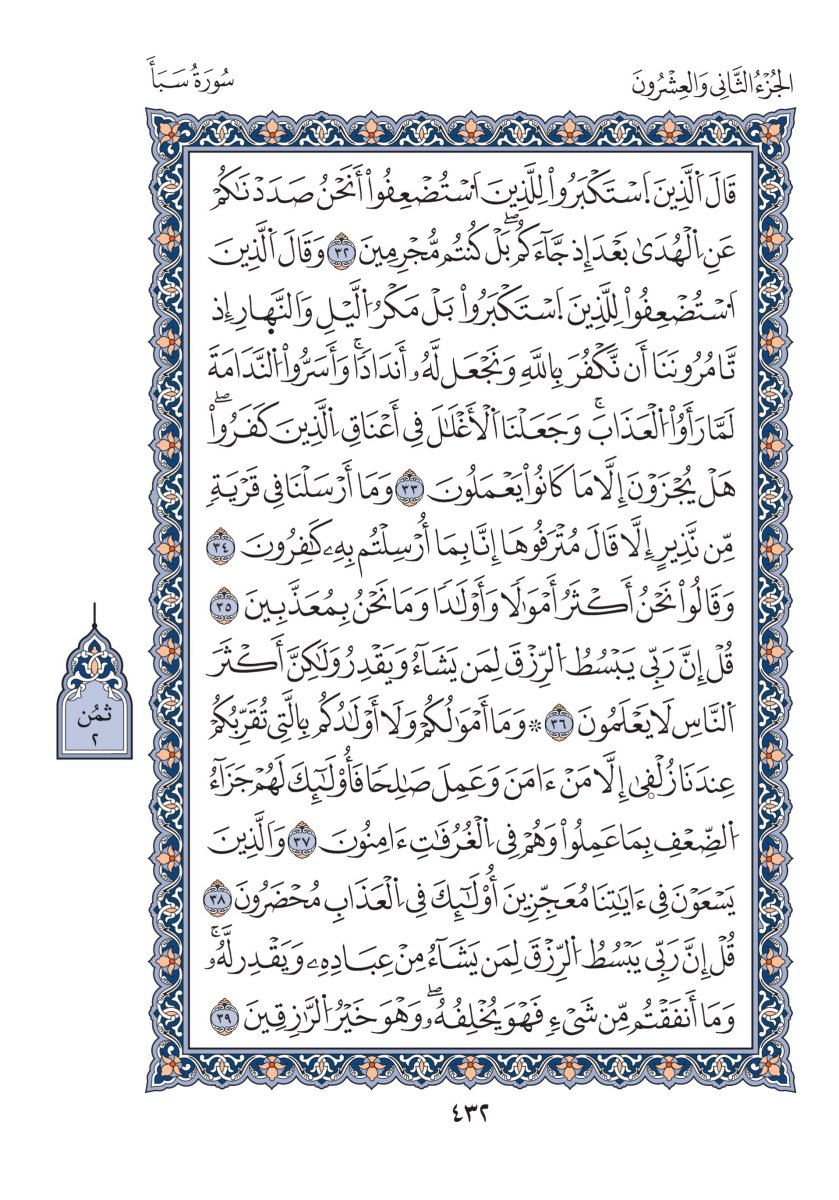 الجُزْءُ الثَّانِي وَالعِشْرُونَ
سُورَةُ سَبَأ
قَالَ اَ۬لَّذِينَ اَ۪سۡتَكۡبَرُواْ لِلَّذِينَ اَ۟سۡتُضۡعِفُوٓاْ أَنَحۡنُ صَدَدۡنَٰكُمۡ
عَنِ اِ۬لۡهُدَىٰ بَعۡدَ إِذ جَّآءَكُمۖ بَلۡ كُنتُم مُّجۡرِمِينَ ٣٢ وَقَالَ اَ۬لَّذِينَ
اَ۟سۡتُضۡعِفُواْ لِلَّذِينَ اَ۪سۡتَكۡبَرُواْ بَلۡ مَكۡرُ اُ۬لَّيۡلِ وَالنَّه۪ارِ إِذ
تَّامُرُونَنَا أَن نَّكۡفُرَ بِاللَّهِ وَنَجۡعَل لَّهُۥ أَندَادٗاۚ وَأَسَرُّواْ اُ۬لنَّدَامَةَ
لَمَّا رَأَوُاْ اُ۬لۡعَذَابَۚ وَجَعَلۡنَا اَ۬لۡأَغۡلَٰلَ فِي أَعۡنَاقِ اِ۬لَّذِينَ كَفَرُواْۖ
هَلۡ يُجۡزَوۡنَ إِلَّا مَا كَانُواْ يَعۡمَلُونَ ٣٣ وَمَا أَرۡسَلۡنَا فِي قَرۡيَةٖ
مِّن نَّذِيرٍ إِلَّا قَالَ مُتۡرَفُوهَا إِنَّا بِمَا أُرۡسِلۡتُم بِهِۦ كَٰفِرُونَ ٣٤
وَقَالُواْ نَحۡنُ أَكۡثَرُ أَمۡوَٰلٗا وَأَوۡلَٰدٗا وَمَا نَحۡنُ بِمُعَذَّبِينَ ٣٥
قُلۡ إِنَّ رَبِّي يَبۡسُطُ اُ۬لرِّزۡقَ لِمَن يَشَآءُ وَيَقۡدِرُ وَلَٰكِنَّ أَكۡثَرَ
اَ۬لنَّاسِ لَا يَعۡلَمُونَ ٣٦ ۞ وَمَا أَمۡوَٰلُكُمۡ وَلَا أَوۡلَٰدُكُم بِالَّتِي تُقَرِّبُكُمۡ
عِندَنَا زُلۡف۪ىٰ إِلَّا مَنۡ ءَامَنَ وَعَمِلَ صَٰلِحٗا فَأُوْلَٰٓئِكَ لَهُمۡ جَزَآءُ
اُ۬لضِّعۡفِ بِمَا عَمِلُواْ وَهُمۡ فِي اِ۬لۡغُرُفَٰتِ ءَامِنُونَ ٣٧ وَالَّذِينَ
يَسۡعَوۡنَ فِي ءَايَٰتِنَا مُعَجِّزِينَ أُوْلَٰٓئِكَ فِي اِ۬لۡعَذَابِ مُحۡضَرُونَ ٣٨
قُلۡ إِنَّ رَبِّي يَبۡسُطُ اُ۬لرِّزۡقَ لِمَن يَشَآءُ مِنۡ عِبَادِهِۦ وَيَقۡدِر لَّهُۥۚ
وَمَا أَنفَقۡتُم مِّن شَيۡءٖ فَهۡوَ يُخۡلِفُهُۥۖ وَهۡوَ خَيۡرُ اُ۬لرَّٰزِقِينَ ٣٩
ثمُن
٢
٤٣٢